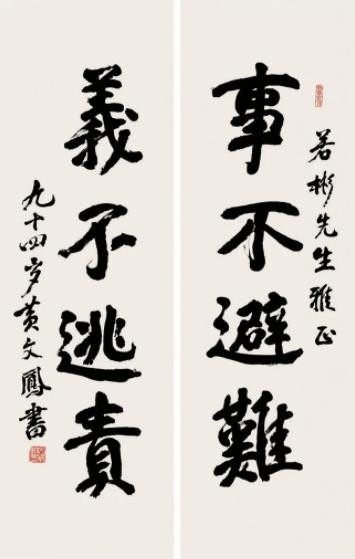 若彬先生雅正
事不避難
義不逃責
九十四岁黄文鳳書